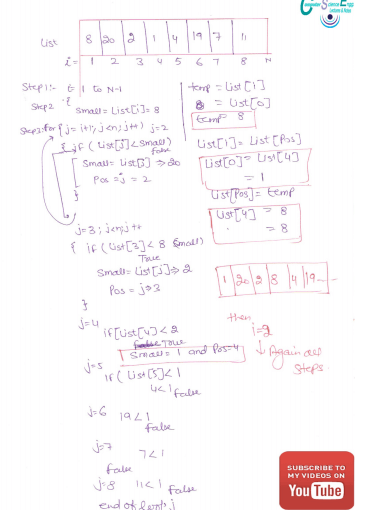 Computer Science Engg
Lectures & Notes
List 8 20 2 1 4 19 7 11
i= 1 2 3 4 5 6 7 8 N
Step1:- 1 to N-1
Step2 {
Small = List[i] = 8
Step3: for (j=i+1; j<n; j++) j=2
{ if (List[j] < Small)
false
Small = List[j] ⇒ 20
Pos = j = 2
}
j=3; j<n; j++
{ if (List[3] < 8 Small)
True
Small = List[j] ⇒ 2
Pos = j ⇒ 3
}
j=4
if [List[4] < 2
True
Small = 1 and Pos=4
j=5
if (List[5] < 1
4<1 false
j=6 19<1
false
j=7
7<1
false
j=8 11<1 false
end of loop j
temp = List[i]
8 = List[0]
temp 8
List[i] = List[Pos]
List[0] = List[4]
= 1
List[Pos] = temp
List[4] = 8
= 8
1 20 2 8 4 19--
then
i=2
↓ Again all
Steps
SUBSCRIBE TO
MY VIDEOS ON
YouTube